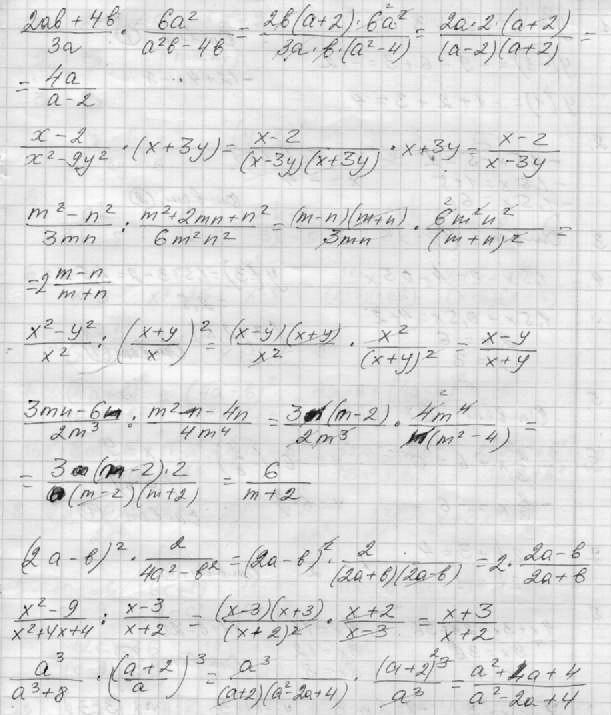 (2ab + 4b)/(3a) · (6a²)/(a²b - 4b) = (2b(a+2)·6²a²)/(3a·b·(a²-4)) = (2a·2·(a+2))/((a-2)(a+2)) =
= (4a)/(a-2)
(x-2)/(x²-9y²) · (x+3y) = (x-2)/((x-3y)(x+3y)) · x+3y = (x-2)/(x-3y)
(m²-n²)/(3mn) : (m²+2mn+n²)/(6m²n²) = ((m-n)(m+n))/(3mn) · (6²m²n²)/((m+n)²) =
= 2 (m-n)/(m+n)
(x²-y²)/(x²) : ((x+y)/x)² = ((x-y)(x+y))/(x²) · (x²)/((x+y)²) = (x-y)/(x+y)
(3mn-6n)/(2m³) : (m²n-4n)/(4m⁴) = (3n(m-2))/(2m³) · (4²m⁴)/(n(m²-4)) =
= (3(m-2)·2)/((m-2)(m+2)) = 6/(m+2)
(2a-b)² · 2/(4a²-b²) = (2a-b)² · 2/((2a+b)(2a-b)) = 2 · (2a-b)/(2a+b)
(x²-9)/(x²+4x+4) : (x-3)/(x+2) = ((x-3)(x+3))/((x+2)²) · (x+2)/(x-3) = (x+3)/(x+2)
(a³)/(a³+8) · ((a+2)/a)³ = (a³)/((a+2)(a²-2a+4)) · ((a+2)³²)/(a³) = (a²+4a+4)/(a²-2a+4)